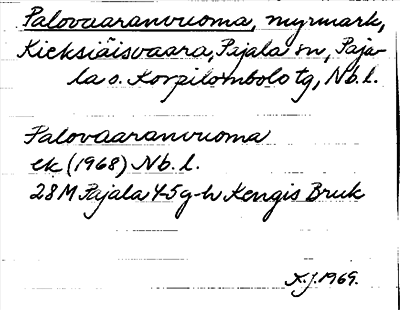 Palovaaranvuoma, myrmark,
Kieksiäisvaara, Pajala sn, Paja-
la o. Korpilombolo tg, Nb. l.
Palovaaranvuoma
ek (1968) Nb. l.
28M Pajala 4-5 g-h Kengis Bruk
K.J. 1969.